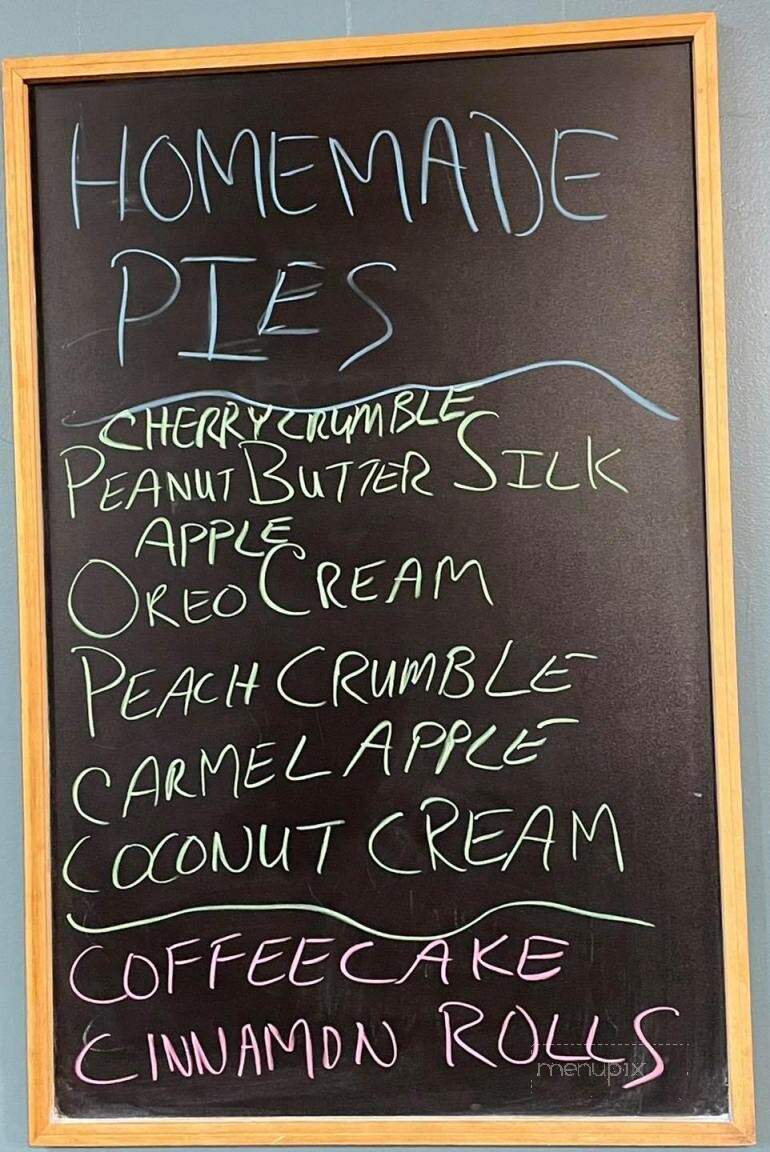 HOMEMADE
PIES
CHERRY CRUMBLE
PEANUT BUTTER SILK
APPLE
OREO CREAM
PEACH CRUMBLE
CARMEL APPLE
COCONUT CREAM
COFFEECAKE
CINNAMON ROLLS
menupix